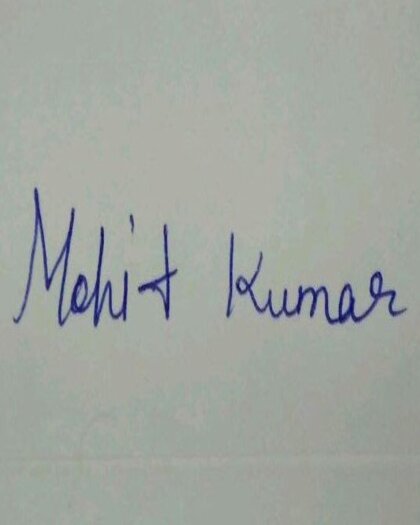 Mohit Kumar